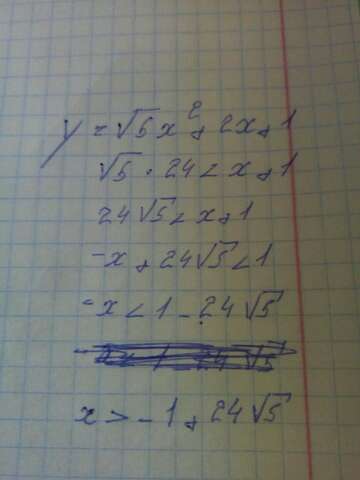 y = √5x² + 2x + 1
√5 · 24 < x + 1
24√5 < x + 1
-x + 24√5 < 1
-x < 1 - 24√5
x > -1 + 24√5